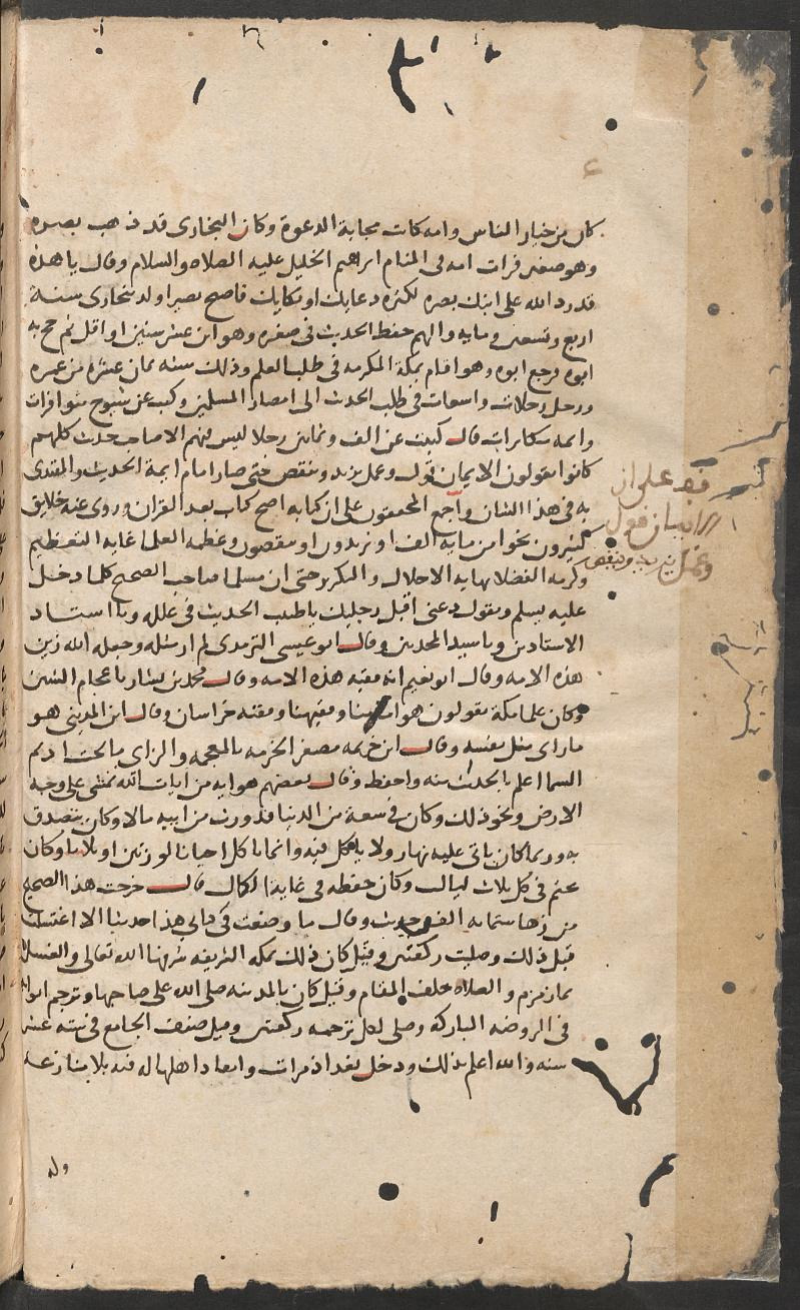 كان من خيار الناس وامه كانت مجابة الدعوة وكان البخارى قد ذهب بصره
وهو صغير فرات امه فى المنام ابرهيم الخليل عليه الصلاه والسلام وقال يا هذه
قد رد الله على ابنك بصره لكثرة دعايك او بكايك فاصبح بصيرا ولد ببخارى سنة
اربع وتسعين ومايه والهم حفظ الحديث فى صغره وهو ابن عشر سنين او اقل ثم حج به
ابوه فرجع ابوه وهو اقام بمكة المكرمه فى طلب العلم وذلك سنه ثمان عشره من عمره
ورحل رحلات واسعات فى طلب الحديث الى امصار المسلمين وكتب عن شيوخ متوافرات
وايمه متكاثرات قال كتبت عن الف وثمانين رجلا ليس فيهم الا صاحب حديث كلهم
كانوا يقولون الايمان قول وعمل يزيد وينقص حتى صار امام ايمة الحديث والمقتدى
به فى هذا الشان واجمع المحققون على ان كتابه اصح كتاب بعد القران وروى عنه خلايق
كثيرون نحوا من مايه الف او يزيدون او ينقصون وعظمه العلما غاية التعظيم
وكرمه الفضلا نهايه الاجلال والتكريم حتى ان مسلما صاحب الصحيح كلما دخل
عليه يسلم ويقول دعنى اقبل رجليك يا طبيب الحديث فى علله ويا استاد
الاستادين ويا سيد المحدثين وقال ابو عيسى الترمدى لم ار مثله وجعله الله زين
هذه الامه وقال ابو نعيم انه فقيه هذه الامه وقال محمد بن بشار
وكان علما مكة يقولون هو امامنا وفقيهنا وفقيه خراسان وقال ابن المدينى هو
ما راى مثل نفسه وقال ابن خزيمه مصغر الخزمه بالمعجمه والزاى ما تحت اديم
السما اعلم بالحديث منه واحفظ وقال بعضهم هو ايه من ايات الله تمشى على وجه
الارض ونحو ذلك وكان فى سعة من الدنيا قد ورث من ابيه مالا وكان يتصدق
به وربما كان ياتى عليه نهار ولا ياكل فيه وانما ياكل احيانا لوزتين او ثلاثا وكان
يختم فى كل ثلاث ليال وكان حفظه فى غاية الكمال قال خرجت هذا الصحيح
من زها ستمايه الف حديث وقال ما وضعت فى كتابى هذا حديثا الا اغتسلت
قبل ذلك وصليت ركعتين وقيل كان ذلك بمكه الشريفه شرفها الله تعالى والغسل
بما زمزم والصلاه خلف المقام وقيل كان بالمدينه صلى الله على صاحبها وترجم ابوابه
فى الروضه المباركة وصلى لكل ترجمه ركعتين وقيل صنف الجامع فى سته عشر
سنه والله اعلم بذلك ودخل بغداذ مرات وانقاد اهلها له فيه بلا منازعة
وله
قف على ان
الايمان قول
وعمل يزيد وينقص